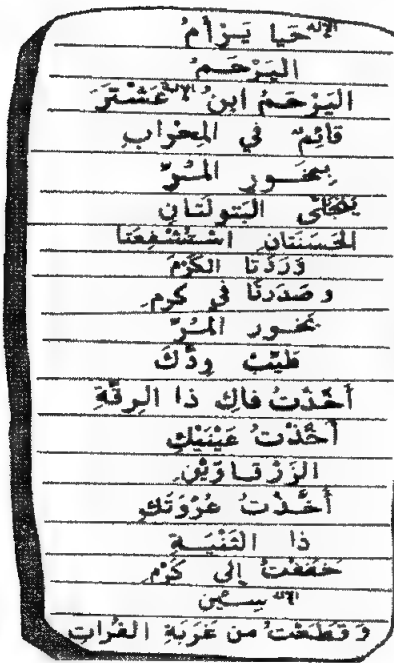 الإله حَيا يَرْأَمُ
اليَرْحَمُ
اليَرْحَمُ ابنُ الإلهة عَشْتَرَ
قائِمٌ في المِحْرابِ
بِبخُورِ المُرِّ
البَتولَتَانِ
الحَسَنَتَانِ اسْتَشْفَعَتا
وَرَدْتا الكَرْمَ
وصَدَرتا في كرمِ
بَخورِ المُرِّ
طَيِّبٌ وِدُّكَ
أَخَّذْتُ فاكِ ذا الرِقَّةِ
أَخَّذْتُ عَيْنَيْكِ
الزَرْقاوَيْنِ
أَخَّذْتُ عُرْوَتَكِ
ذا الثَنْيَةِ
خَفَفْتُ إلى كَرْمِ
الإله سِين
وَقَطَعْتُ من غَرَبَةِ الفُراتِ